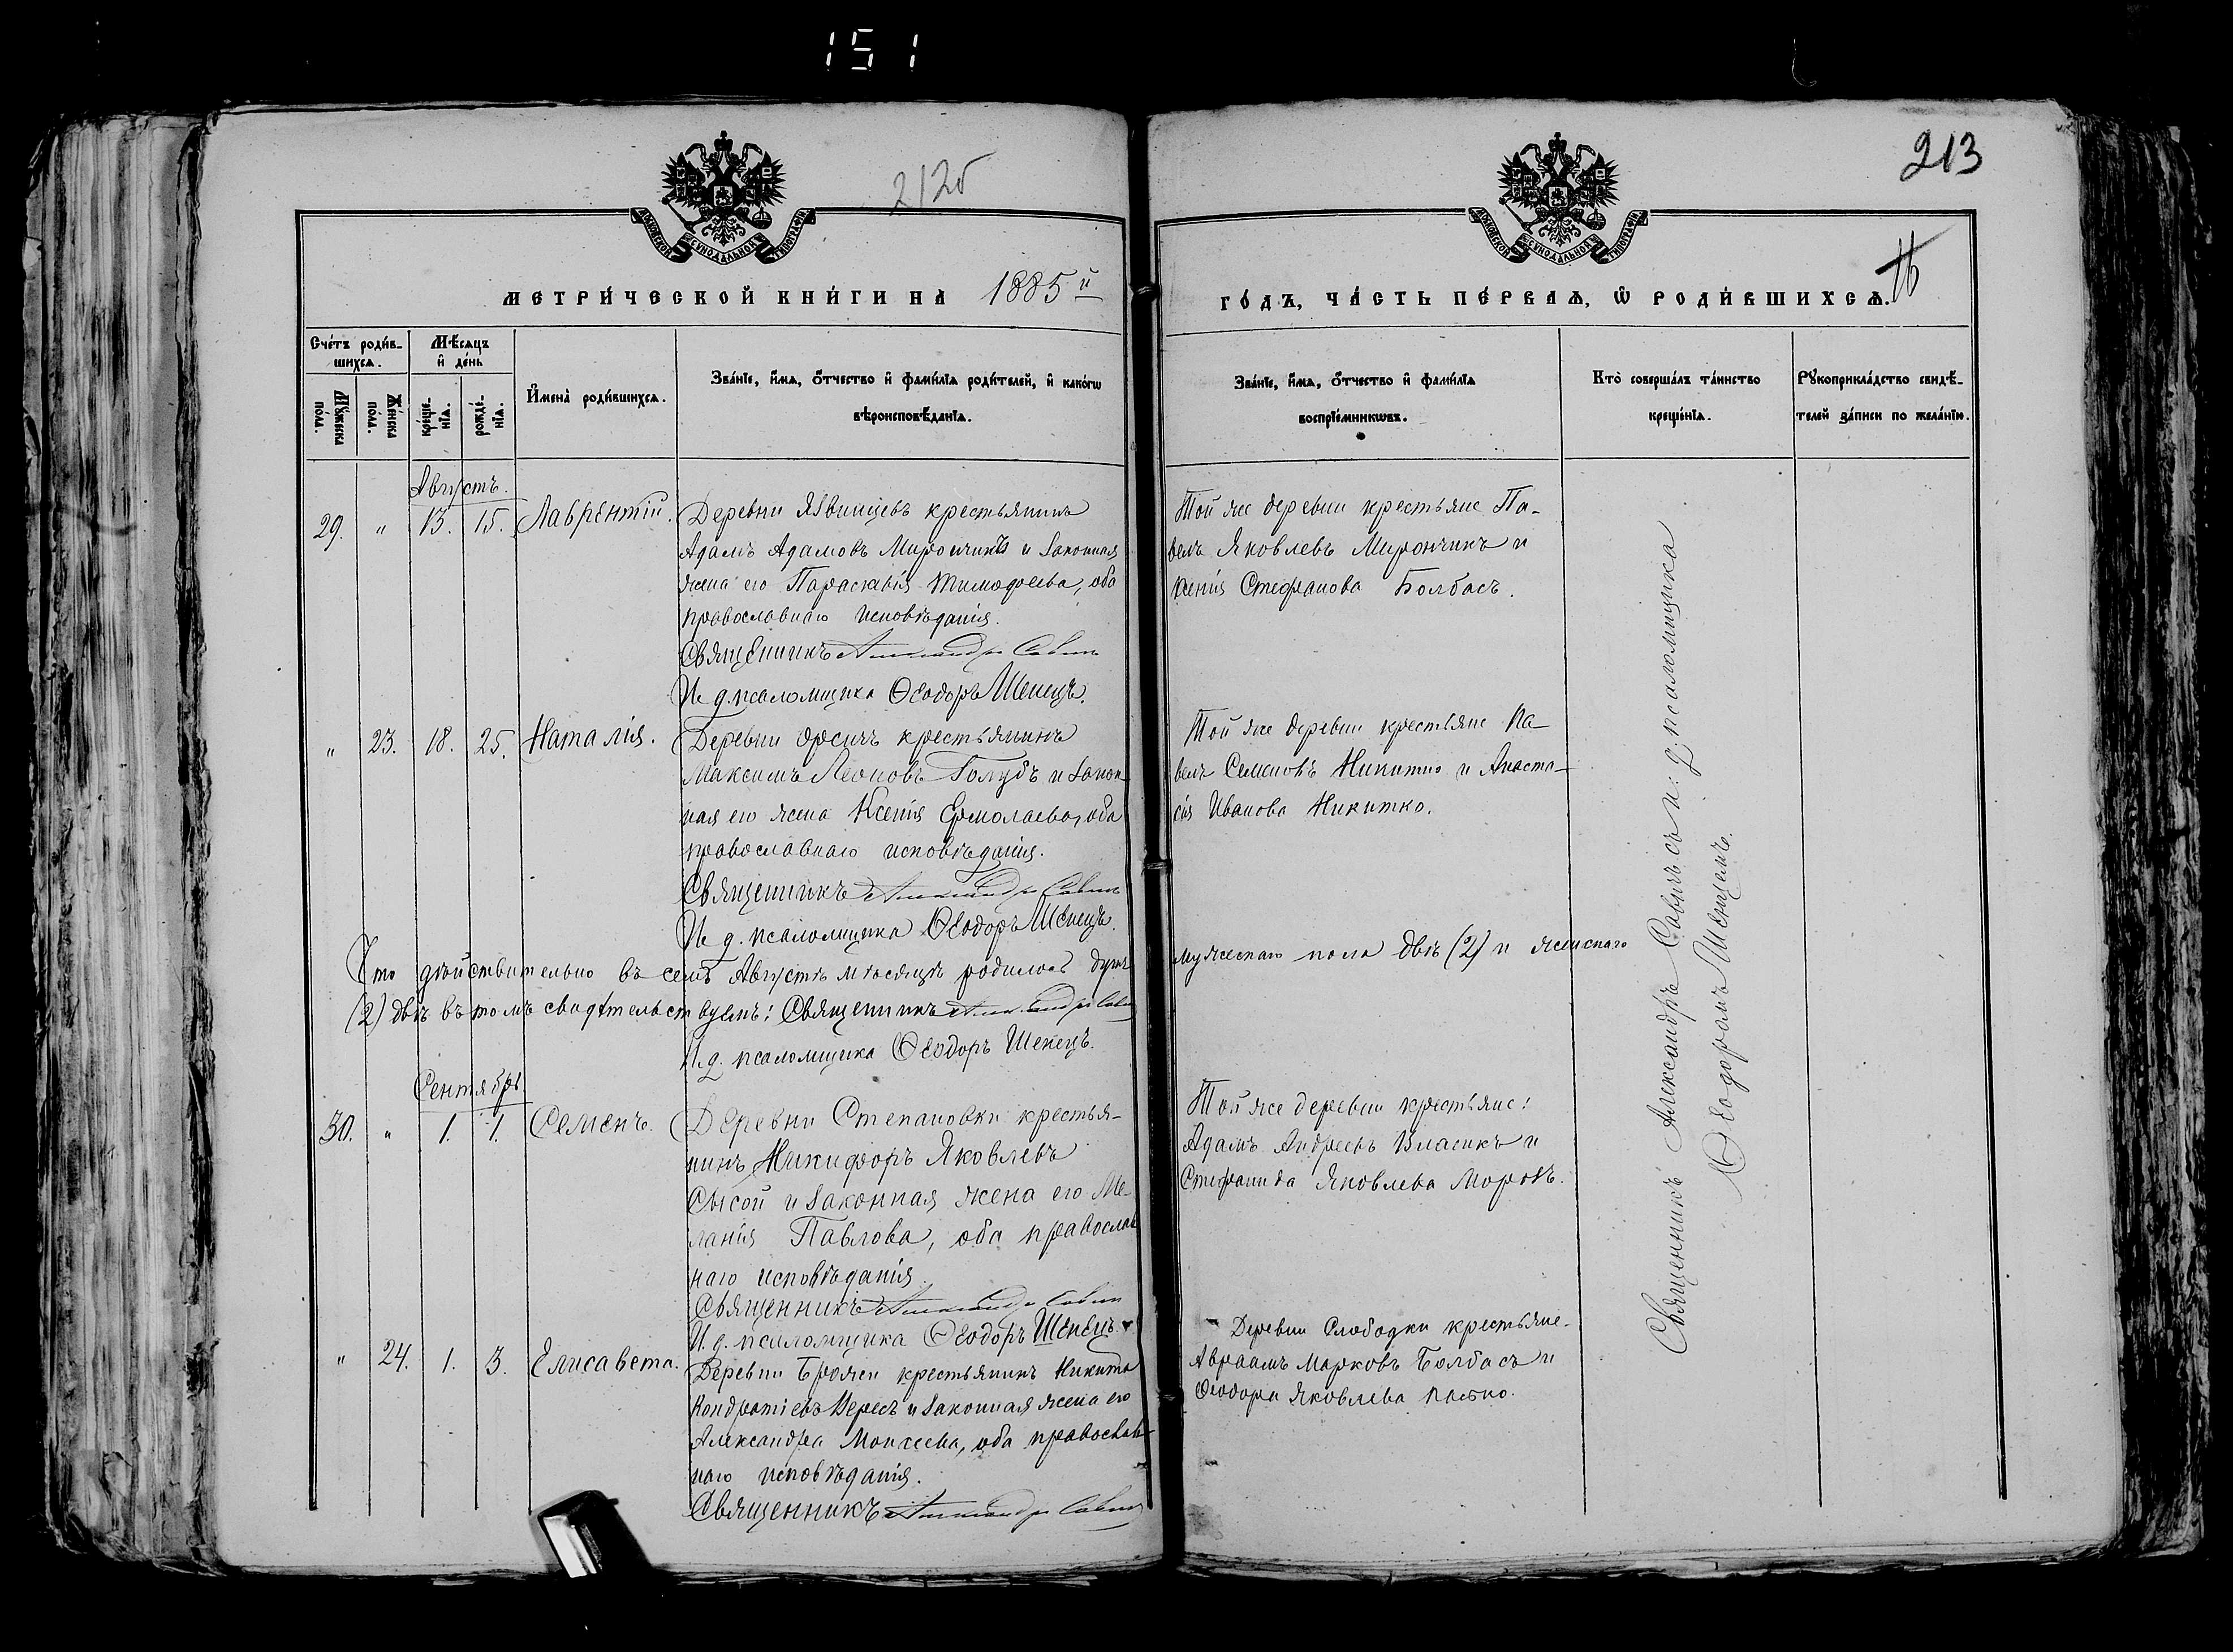 151
212б
213
16
МОСКОВСКОЙ СѴНОДАЛЬНОЙ ТИПОГРАФІИ
МОСКОВСКОЙ СѴНОДАЛЬНОЙ ТИПОГРАФІИ
МЕТРИ́ЧЕСКОЙ КНИ́ГИ НА 1885й
ГО́ДЪ, ЧА́СТЬ ПЕ́РВАѦ, Ѡ҆ РОДИ́ВШИХСѦ.
Сче́тъ роди́в-
шихсѧ.
Мѣ́сѧцъ
и҆ де́нь
Му́жеска
по́лꙋ.
Же́нска
по́лꙋ.
креще́-
нїѧ.
рожде́-
нїѧ.
И҆мена̀ роди́вшихсѧ.
Зва́нїе, и҆́мѧ, ѻ҆́тчество и҆ фамі́лїѧ роди́телей, и҆ како́гѡ
вѣроисповѣ́данїѧ.
Зва́нїе, и҆́мѧ, ѻ҆́тчество и҆ фамі́лїѧ
воспрїе́мникѡвъ.
Кто̀ соверша́лъ та́инство
креще́нїѧ.
Рꙋкоприкла́дство свидѣ́-
телей за́писи по жела́нїю.
Августъ.
29. „ 13. 15. Лаврентій.
Деревни Явищевъ крестьянинъ
Адамъ Адамовъ Мирончикъ и законная
жена его Параскевія Тимофеева, оба
православнаго исповѣданія.
Священникъ Александръ Савичъ
И. д. псаломщика Ѳеодоръ Шенецъ.
Той же деревни крестьяне Па-
велъ Яковлевъ Мирончикъ и
Ксенія Стефанова Болбасъ.
„ 23. 18. 25. Наталія.
Деревни крестьянинъ
Максимъ Леоновъ Голубъ и закон-
ная его жена Ксенія Ермолаева, оба
православнаго исповѣданія.
Священникъ Александръ Савичъ
И. д. псаломщика Ѳеодоръ Шенецъ.
Той же деревни крестьяне Па-
велъ Семеновъ Никитко и Анаста-
сія Иванова Никитко.
Что дѣйствительно въ семъ Августѣ мѣсяцѣ родилось душъ мужескаго пола двѣ (2) и женскаго
(2) двѣ въ томъ свидѣтельствуемъ: Священникъ Александръ Савичъ
И. д. псаломщика Ѳеодоръ Шенецъ.
Сентябрь
30. „ 1. 1. Семенъ.
Деревни Степановки крестья-
нинъ Никифоръ Яковлевъ
Сысой и законная жена его Ме-
ланія Павлова, оба православ-
наго исповѣданія.
Священникъ Александръ Савичъ
И. д. псаломщика Ѳеодоръ Шенецъ.
Той же деревни крестьяне:
Адамъ Андреевъ Власикъ и
Стефанида Яковлева Морозъ.
„ 24. 1. 3. Елисавета.
Деревни Брожи крестьянинъ Никита
Кондратіевъ Вересъ и законная жена его
Александра Моисеева, оба православ-
наго исповѣданія.
Священникъ Александръ Савичъ
Деревни Слободки крестьяне
Авраамъ Марковъ Болбасъ и
Ѳеодора Яковлева
Священникъ Александръ Савичъ съ и: д: псаломщика
Ѳеодоромъ Шенецемъ.